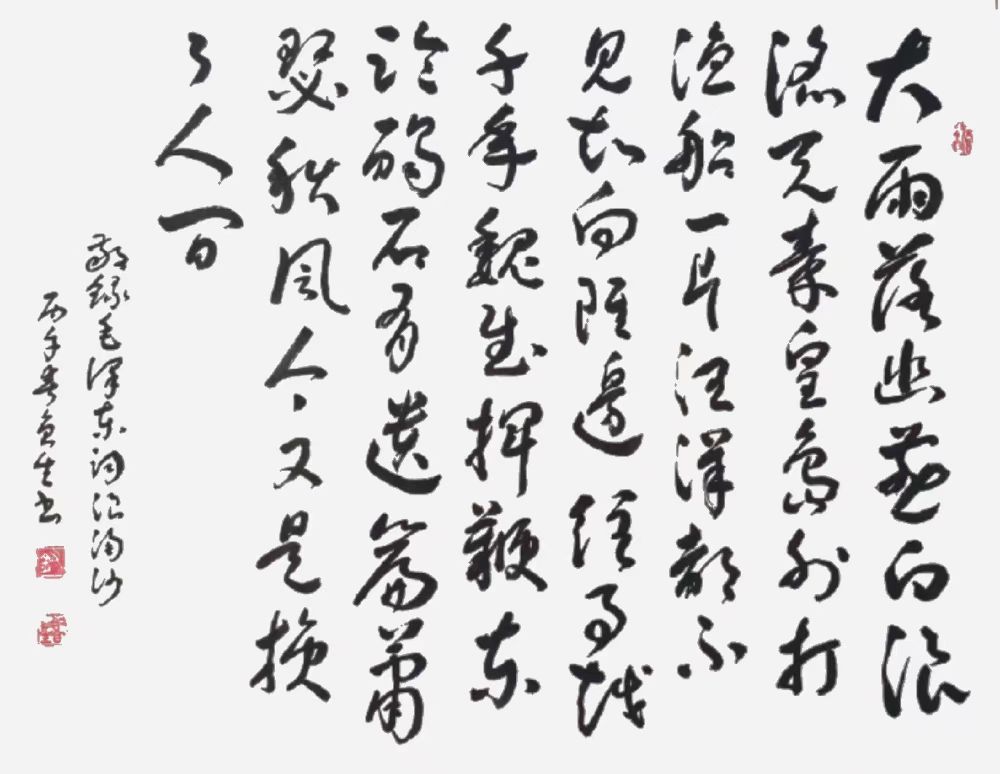 大雨落幽燕白浪
滔天秦皇岛外打
渔船一片汪洋都不
见知向谁邊往事越
千年魏武揮鞭东
临碣石有遺篇萧
瑟秋风今又是换
了人间
敬録毛泽东词浪淘沙
丙午春生书